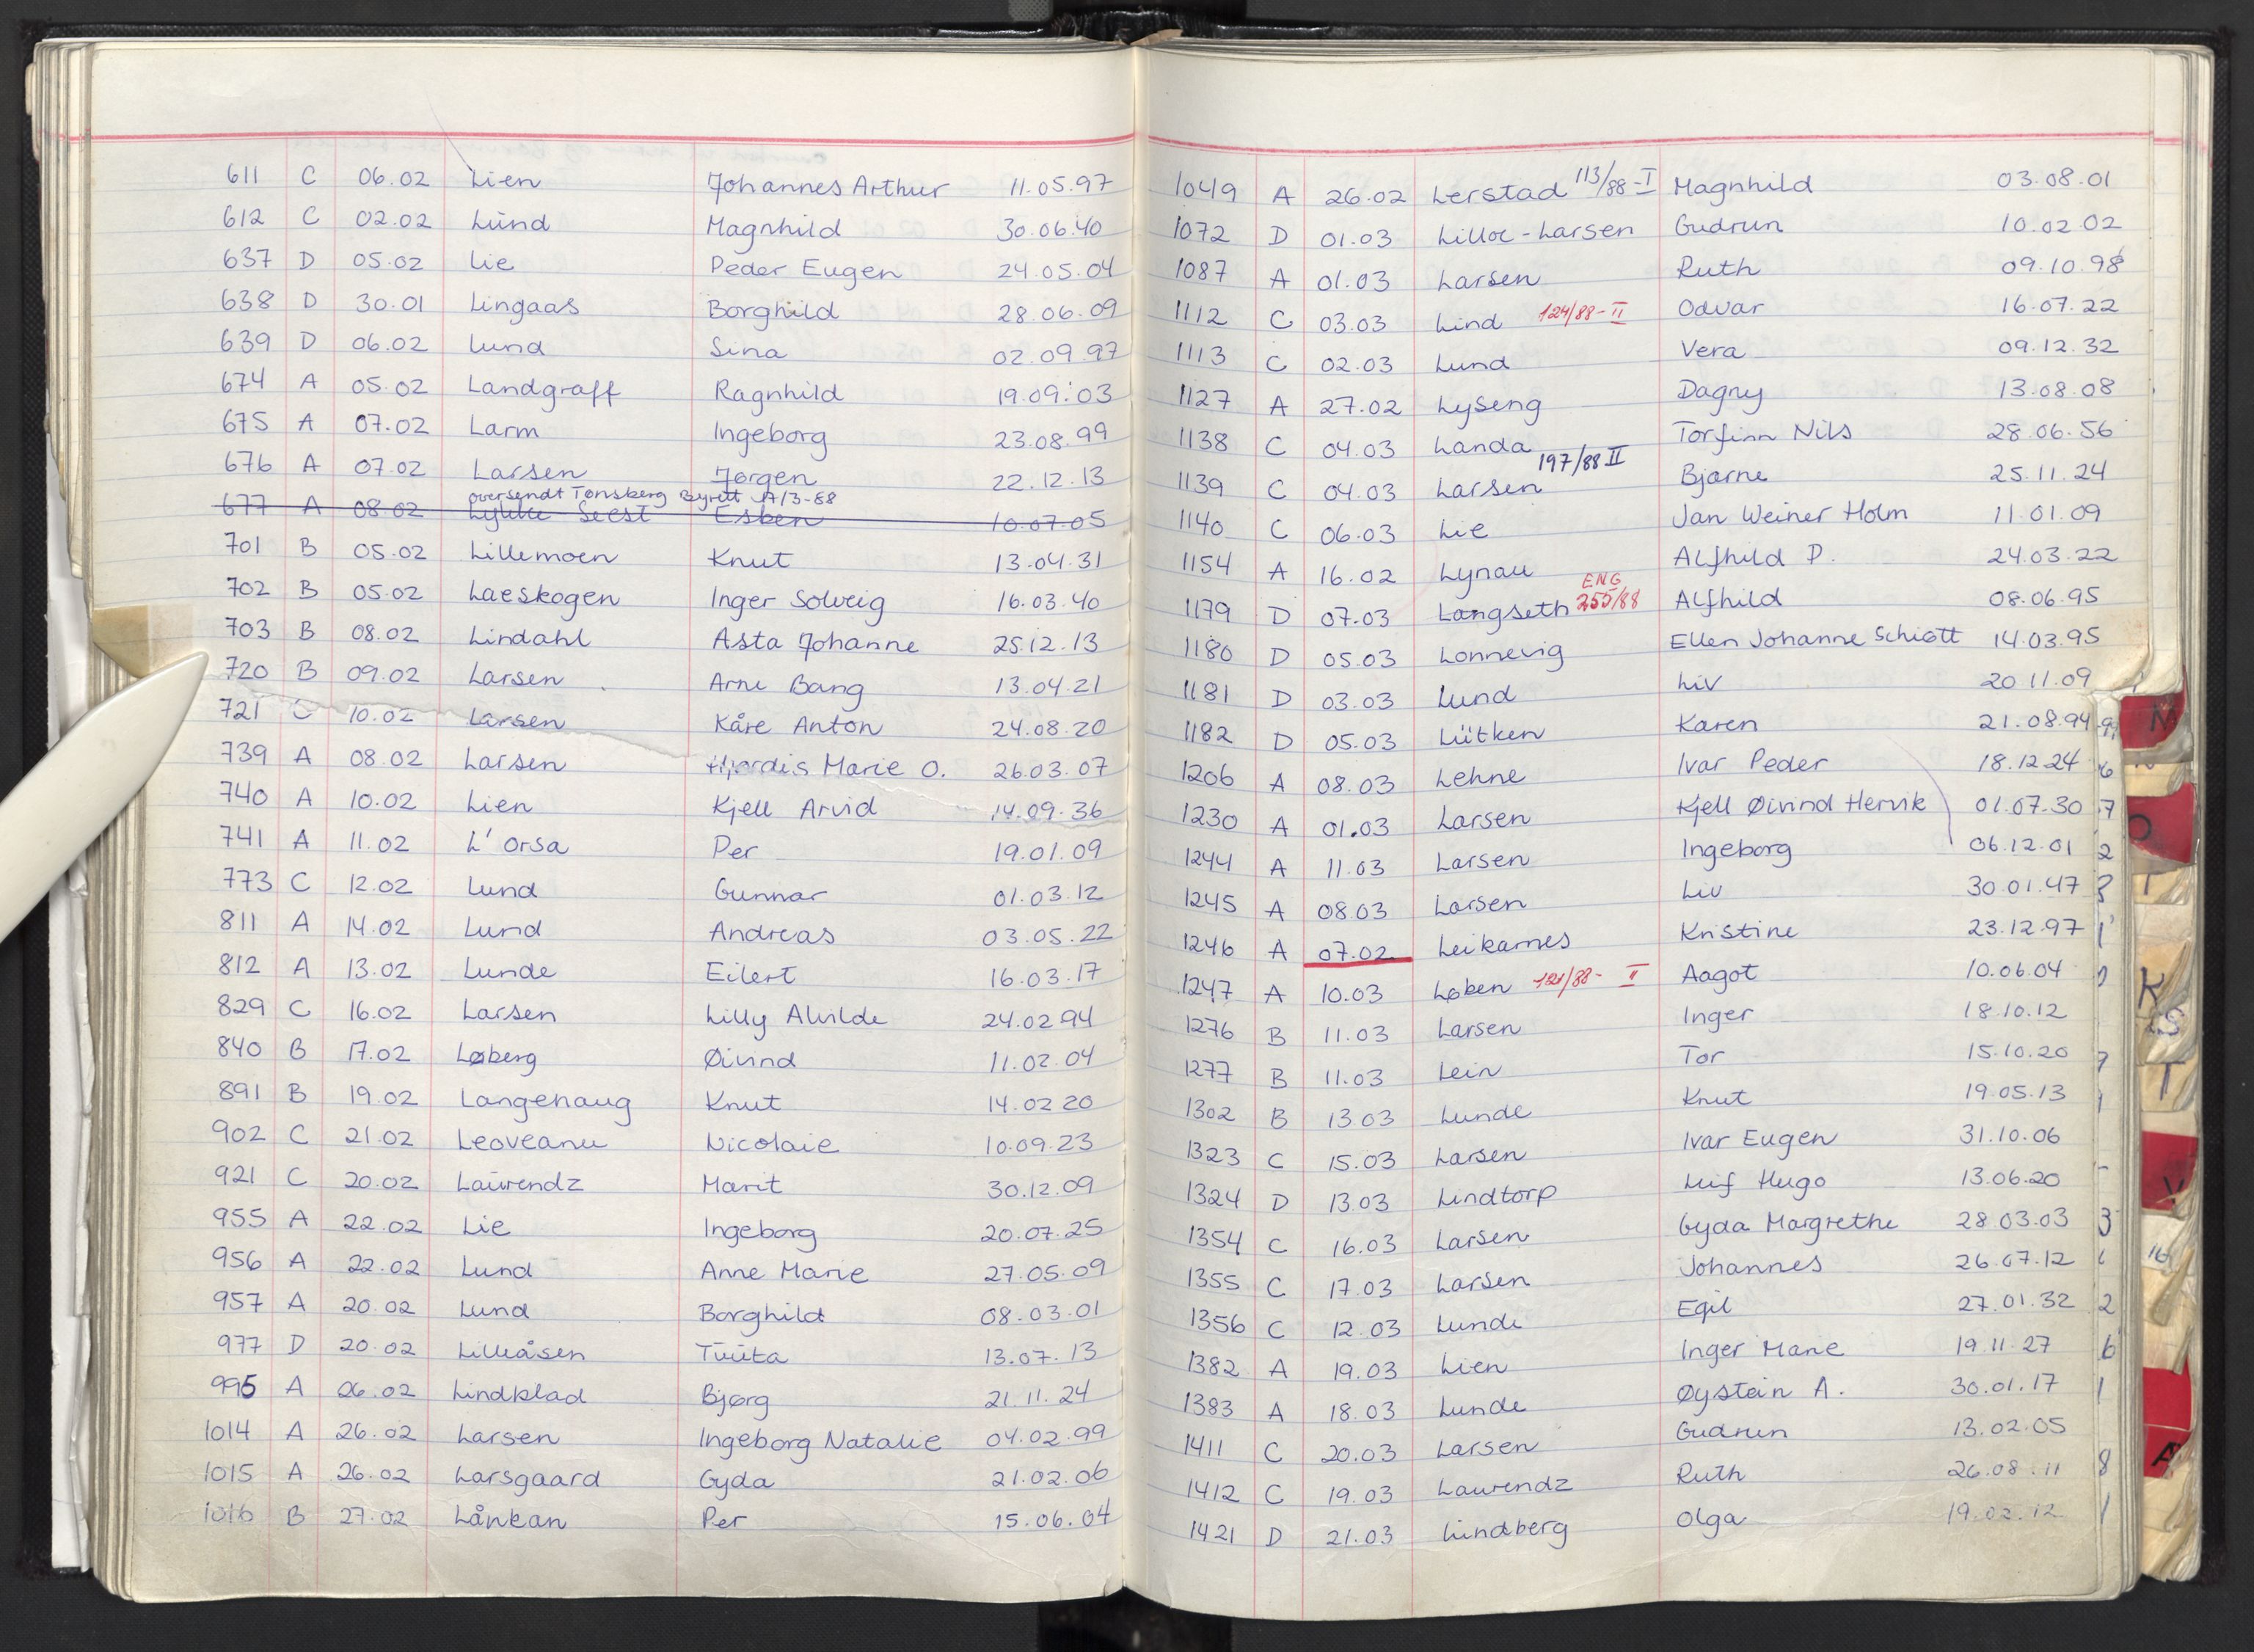 611 C 06.02 Lien Johannes Arthur 11.05.97
612 C 02.02 Lund Magnhild 30.06.40
637 D 05.02 Lie Peder Eugen 24.05.04
638 D 30.01 Lingaas Borghild 28.06.09
639 D 06.02 Lund Sina 02.09.97
674 A 05.02 Landgraff Ragnhild 19.09.03
675 A 07.02 Larm Ingeborg 23.08.99
676 A 07.02 Larsen Jørgen 22.12.13
oversendt Tønsberg Byrett 17/3-88
677 A 08.02 Lykke-Seest Esben 10.07.05
701 B 05.02 Lillemoen Knut 13.04.31
702 B 05.02 Laeskogen Inger Solveig 16.03.40
703 B 08.02 Lindahl Asta Johanne 25.12.13
720 B 09.02 Larsen Arne Bang 13.04.21
721 C 10.02 Larsen Kåre Anton 24.08.20
739 A 08.02 Larsen Hjørdis Marie O. 26.03.07
740 A 10.02 Lien Kjell Arvid 14.09.36
741 A 11.02 L'orsa Per 19.01.09
773 C 12.02 Lund Gunnar 01.03.12
811 A 14.02 Lund Andreas 03.05.22
812 A 13.02 Lunde Eilert 16.03.17
829 C 16.02 Larsen Lilly Alvilde 24.02.94
840 B 17.02 Løberg Øivind 11.02.04
891 B 19.02 Langehaug Knut 14.02.20
902 C 21.02 Leoveanu Nicolaie 10.09.23
921 C 20.02 Laurendz Marit 30.12.09
955 A 22.02 Lie Ingeborg 20.07.25
956 A 22.02 Lund Anne Marie 27.05.09
957 A 20.02 Lund Borghild 08.03.01
977 D 20.02 Lilleåsen Tuuta 13.07.13
995 A 26.02 Lindblad Bjørg 21.11.24
1014 A 26.02 Larsen Ingeborg Natalie 04.02.99
1015 A 26.02 Larsgaard Gyda 21.02.06
1016 B 27.02 Lånkan Per 15.06.04
1049 A 26.02 Lerstad 113/88-I Magnhild 03.08.01
1072 D 01.03 Lilloe-Larsen Gudrun 10.02.02
1087 A 01.03 Larsen Ruth 09.10.98
1112 C 03.03 Lind 124/88-II Odvar 16.07.22
1113 C 02.03 Lund Vera 09.12.32
1127 A 27.02 Lyseng Dagny 13.08.08
1138 C 04.03 Landa Torfinn Nils 28.06.56
1139 C 04.03 Larsen 197/88 II Bjarne 25.11.24
1140 C 06.03 Lie Jan Weiner Holm 11.01.09
1154 A 16.02 Lynau Alfhild P. 24.03.22
1179 D 07.03 Langseth ENG 255/88 Alfhild 08.06.95
1180 D 05.03 Lonnevig Ellen Johanne Schiøtt 14.03.95
1181 D 03.03 Lund Liv 20.11.09
1182 D 05.03 Lütken Karen 21.08.94
1206 A 08.03 Lehne Ivar Peder 18.12.24
1230 A 01.03 Larsen Kjell Øivind Hervik 01.07.30
1244 A 11.03 Larsen Ingeborg 06.12.01
1245 A 08.03 Larsen Liv 30.01.47
1246 A 07.02 Leikarnes Kristine 23.12.97
1247 A 10.03 Løben 121/88-II Aagot 10.06.04
1276 B 11.03 Larsen Inger 18.10.12
1277 B 11.03 Lein Tor 15.10.20
1302 B 13.03 Lunde Knut 19.05.13
1323 C 15.03 Larsen Ivar Eugen 31.10.06
1324 D 13.03 Lindtorp Leif Hugo 13.06.20
1354 C 16.03 Larsen Gyda Margrethe 28.03.03
1355 C 17.03 Larsen Johannes 26.07.12
1356 C 12.03 Lunde Egil 27.01.32
1382 A 19.03 Lien Inger Marie 19.11.27
1383 A 18.03 Lunde Øystein A. 30.01.17
1411 C 20.03 Larsen Gudrun 13.02.05
1412 C 19.03 Laurendz Ruth 26.08.11
1421 D 21.03 Lindberg Olga 19.02.12
M
O
K
S
T
V